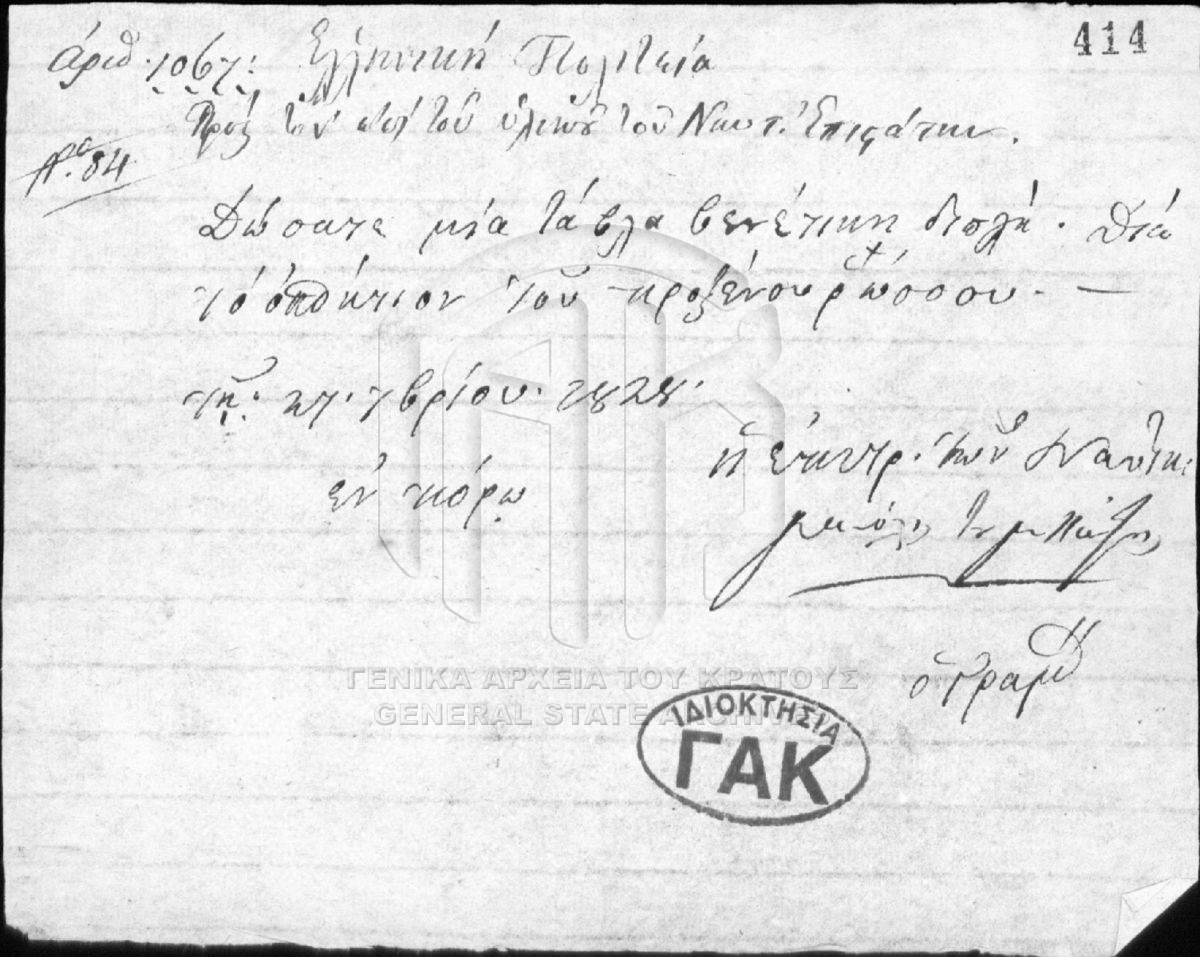 ἀριθ. 1067: Ἑλληνικὴ Πολιτεία
414
Πρὸς τὸν ἐπὶ τοῦ ὑλικοῦ τοῦ Ναυτ. Ἐπιστάτην.
Νο. 84
Δώσατε μία τάβλα βενέτικη διπλῆ. Διὰ
τὸ ὁσπήτιον τοῦ προξένου ῥώσσου. —
τῆ: 27: 7βρίου. 1828.
ἐν πόρῳ
ἡ ἐπιτρ. τῶν Ναυτικ:
τομπάζης
ὁ Γραμ
ΓΕΝΙΚΑ ΑΡΧΕΙΑ ΤΟΥ ΚΡΑΤΟΥΣ
GENERAL STATE ARCHIVES
ΙΔΙΟΚΤΗΣΙΑ
ΓΑΚ